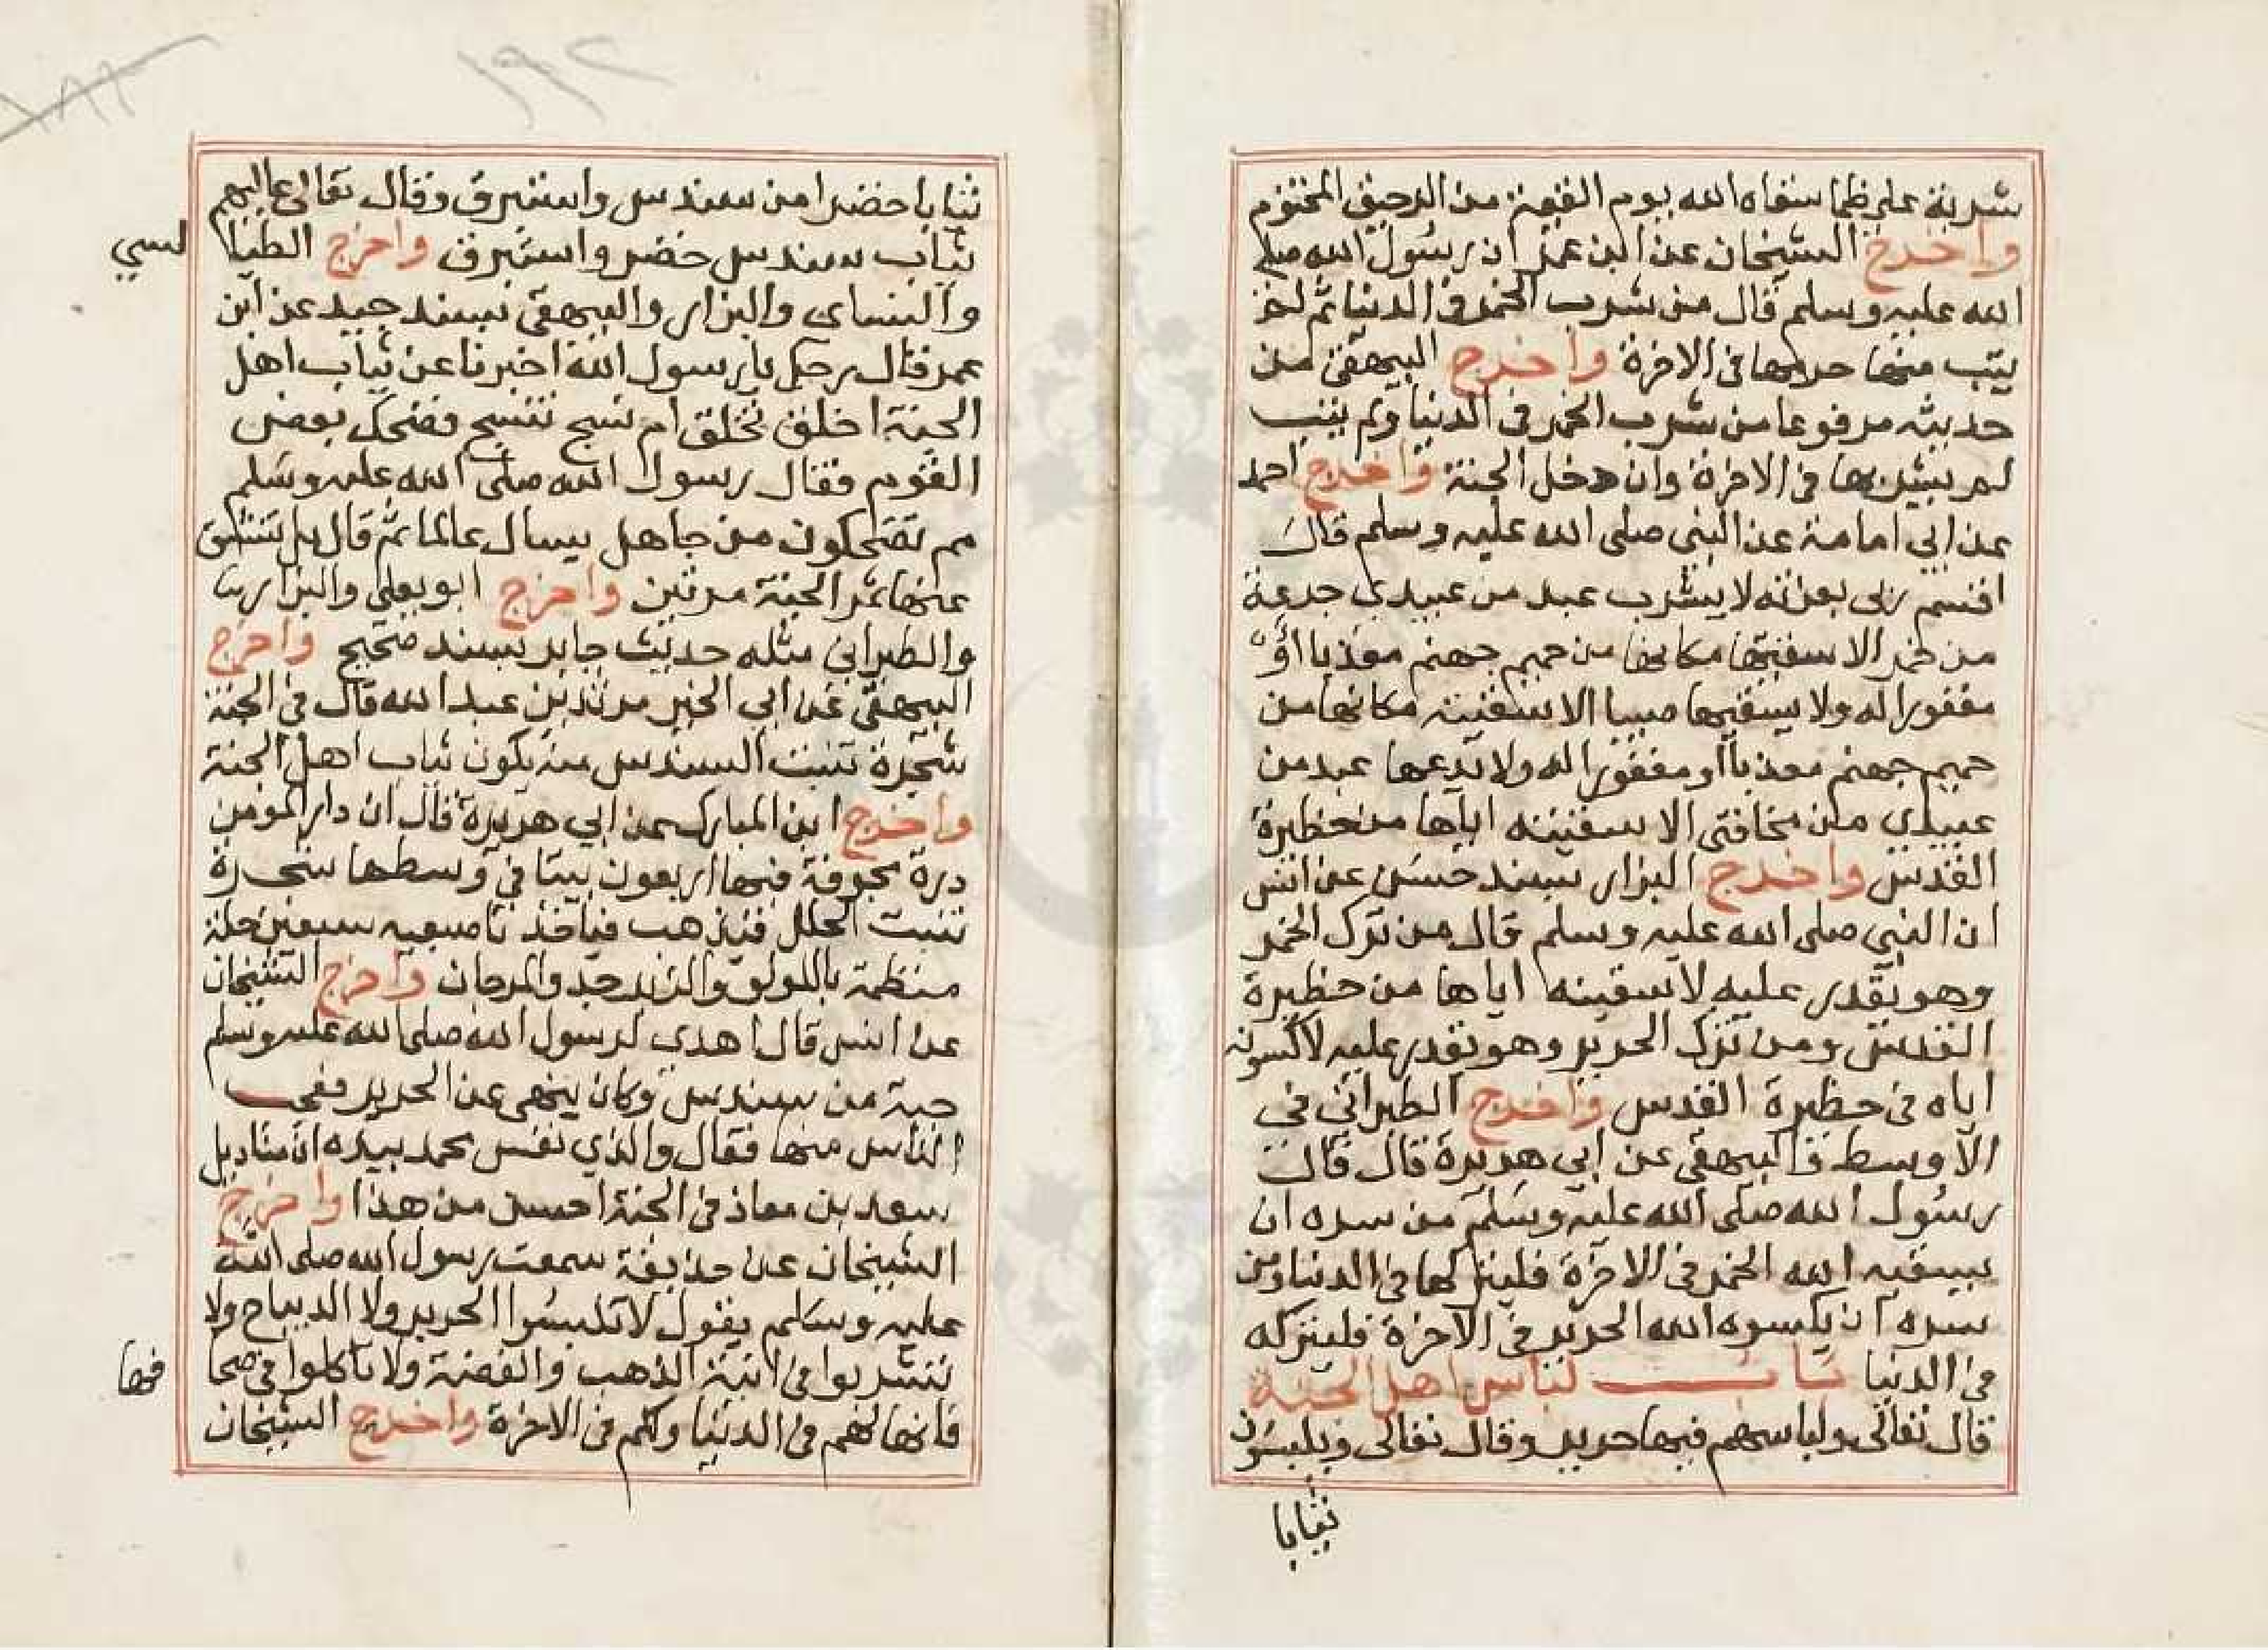 شربة على ظما سقاه الله يوم القيمة من الرحيق المختوم
واخرج الشيخان عن ابن عمر ان رسول الله صلى
الله عليه وسلم قال من شرب الخمر في الدنيا ثم لم
يتب منها حرمها في الاخرة واخرج البيهقي من
حديثه مرفوعا من شرب الخمر في الدنيا ولم يتب
لم يشربها في الاخرة وان دخل الجنة واخرج احمد
عن ابي امامة عن النبي صلى الله عليه وسلم قال
اقسم ربي بعزته لا يشرب عبد من عبيدي جرعة
من خمر الا سقيتها مكانها من حميم جهنم معذبا او
مغفورا له ولا يسقيها صبيا الا سقيته مكانها من
حميم جهنم معذبا او مغفورا له ولا يدعها عبد من
عبيدي من مخافتي الا سقيته اياها من حظيرة
القدس واخرج البزار بسند حسن عن انس
ان النبي صلى الله عليه وسلم قال من ترك الخمر
وهو يقدر عليه لاسقينه اياها من حظيرة
القدس ومن ترك الحرير وهو يقدر عليه لاكسونه
اياه في حظيرة القدس واخرج الطبراني في
الاوسط والبيهقي عن ابي هريرة قال قال
رسول الله صلى الله عليه وسلم من سره ان
يسقيه الله الخمر في الاخرة فليتركها في الدنيا ومن
سره ان يكسوه الله الحرير في الاخرة فليتركه
في الدنيا باب لباس اهل الجنة
قال تعالى ولباسهم فيها حرير وقال تعالى ويلبسون
ثيابا
ثيابا خضرا من سندس واستبرق وقال تعالى عاليهم
ثياب سندس خضر واستبرق واخرج الطيا لسي
والنساي والبزار والبيهقي بسند جيد عن ابن
عمر قال رجل يا رسول الله اخبرنا عن ثياب اهل
الجنة اخلق تخلق ام نسج تنسج فضحك بعض
القوم فقال رسول الله صلى الله عليه وسلم
مم تضحكون من جاهل يسال عالما ثم قال بل تنشق
عنها ثمر الجنة مرتين واخرج ابو يعلي والبزار
والطبراني مثله حديث جابر بسند صحيح واخرج
البيهقي عن ابي الخير مرثد بن عبد الله قال في الجنة
شجرة تنبت السندس منه يكون ثياب اهل الجنة
واخرج ابن المبارك عن ابي هريرة قال ان دار المومن
درة مجوفة فيها اربعون بيتا في وسطها شجرة
تنبت الحلل فيذهب فياخذ باصبعيه سبعين حلة
منظمة باللولو والزبرجد والمرجان واخرج الشيخان
عن انس قال اهدي لرسول الله صلى الله عليه وسلم
جبة من سندس وكان ينهى عن الحرير فعجب
الناس منها فقال والذي نفس محمد بيده ان مناديل
سعد بن معاذ في الجنة احسن من هذا واخرج
الشيخان عن حذيفة سمعت رسول الله صلى الله
عليه وسلم يقول لا تلبسوا الحرير ولا الديباج ولا
تشربوا في انية الذهب والفضة ولا تاكلوا في صحا فها
فانها لهم في الدنيا ولكم في الاخرة واخرج الشيخان